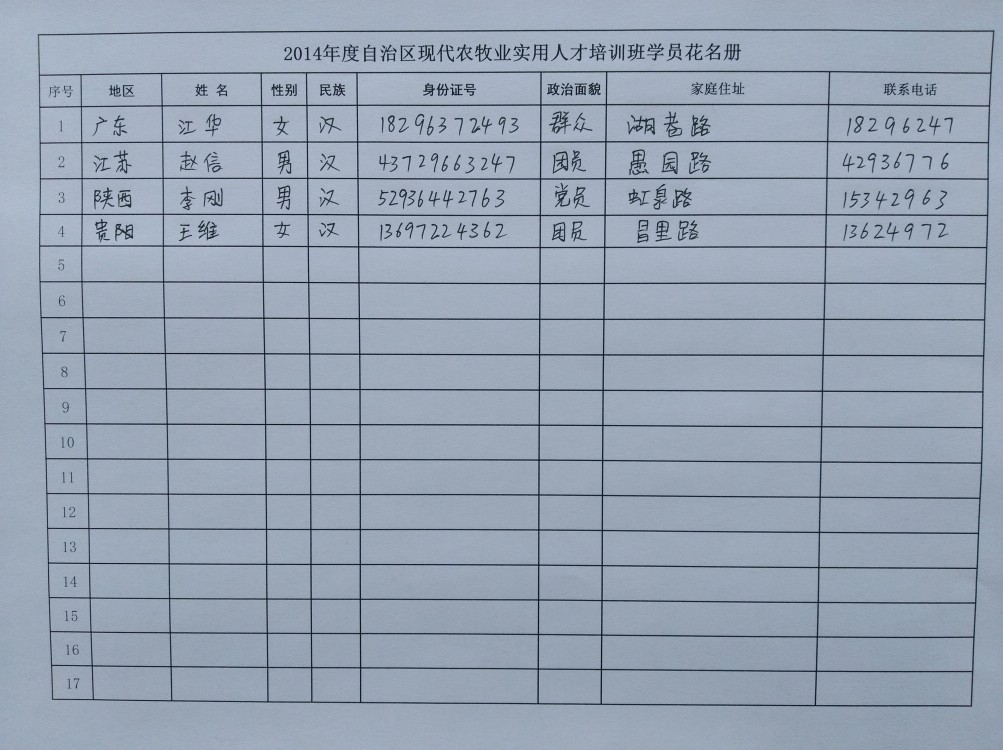 2014年度自治区现代农牧业实用人才培训班学员花名册
序号 地区 姓名 性别 民族 身份证号 政治面貌 家庭住址 联系电话
1 广东 江华 女 汉 18296372493 群众 湖路 18296247
2 江苏 赵信 男 汉 43729663247 团员 愚园路 42936776
3 陕西 李刚 男 汉 52936442763 党员 虹泉路 15342963
4 贵阳 王维 女 汉 13697224362 团员 昌里路 13624972
5
6
7
8
9
10
11
12
13
14
15
16
17